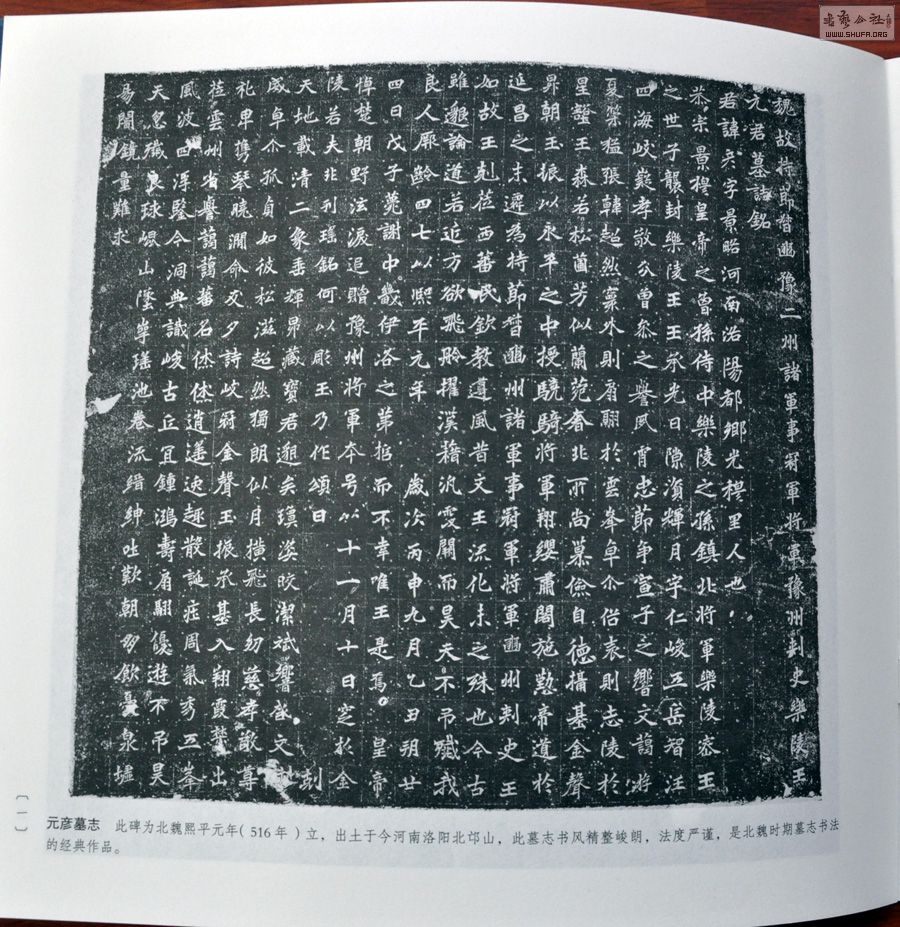 書藝公社
WWW.SHUFA.ORG
魏故持節督豳豫二州諸軍事冠軍將軍豫州刺史樂陵王
元君墓誌銘
君諱彥字景略河南洛陽都鄉光穆里人也
恭宗景穆皇帝之曾孫侍中樂陵之孫鎮北將軍樂陵密王
之世子襲封樂陵王王承光日隙資輝月宇仁峻五岳智汪
四海岐嶷孝敬之譽夙宵忠節爭宣子之響文藹游
夏策猛張韓超然寰外則扃翮於雲峯皁尒俗衷則志陵於
星王森若松菌芳似蘭奢非所尚慕儉自德攝基金聲
昇朝玉振以永平之中授驍騎將軍翔纓肅閣施懃帝道於
延昌之末遷為持節督豳州諸軍事冠軍將軍豳州刺史王
如故王剋莅西蕃民欽教遵風昔文王流化未之殊也今古
雖邈論道若近方欲飛聆擢漢籍汎雯闕而昊天不吊殲我
良人厥齡四七以熙平元年歲次丙申九月乙丑朔廿
四日戊子薨謝中畿伊洛之第而不幸唯王是焉皇帝
悼楚朝野泫淚追贈豫州將軍本号以十一月十日窆於金
陵若夫非刊瑤銘何以彫玉乃作頌曰刻
天地載清二象垂輝昴藏寶君邈矣皎潔斌響文
咸皁尒孤貞如彼松滋超然獨朗似月橫飛長幼慈孝敬尊
礼卑攜琴曉澗命友夕詩岐冠金聲玉振承基入翔霞楚出
莅雲州省譽藹藹蕃名烋烋逍遙散誕疰周氣秀五峯
風波四渾鑒今洞典識峻古丘宜鍾鴻壽扃翮優遊不吊昊
天忽殲良球崐山墜寧瑤池卷流縉紳吐歎朝多飲憂泉壚
易闇鏡量難求
〔一〕
元彦墓志 此碑为北魏熙平元年(516年)立，出土于今河南洛阳北邙山，此墓志书风精整峻朗，法度严谨，是北魏时期墓志书法
的经典作品。